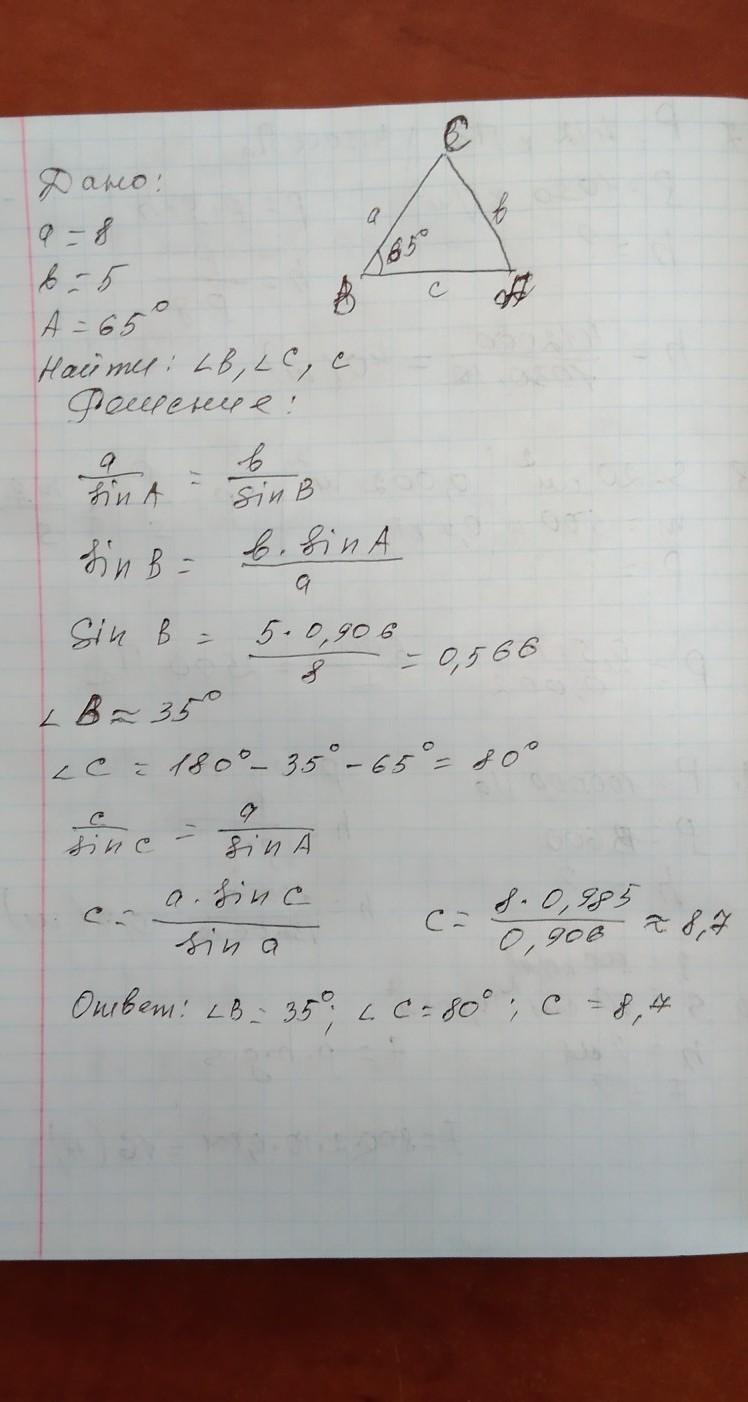 Дано:
a = 8
b = 5
A = 65°
Найти: ∠B, ∠C, c
Решение:
C
a
b
65°
B
c
A
a/sin A = b/sin B
sin B = b · sin A / a
Sin B = 5 · 0,906 / 8 = 0,566
∠ B ≈ 35°
∠ C = 180° – 35° – 65° = 80°
c/sin c = a/sin A
c = a · sin C / sin a
C = 8 · 0,985 / 0,906 ≈ 8,7
Ответ: ∠B = 35°; ∠ C = 80°; C = 8,7